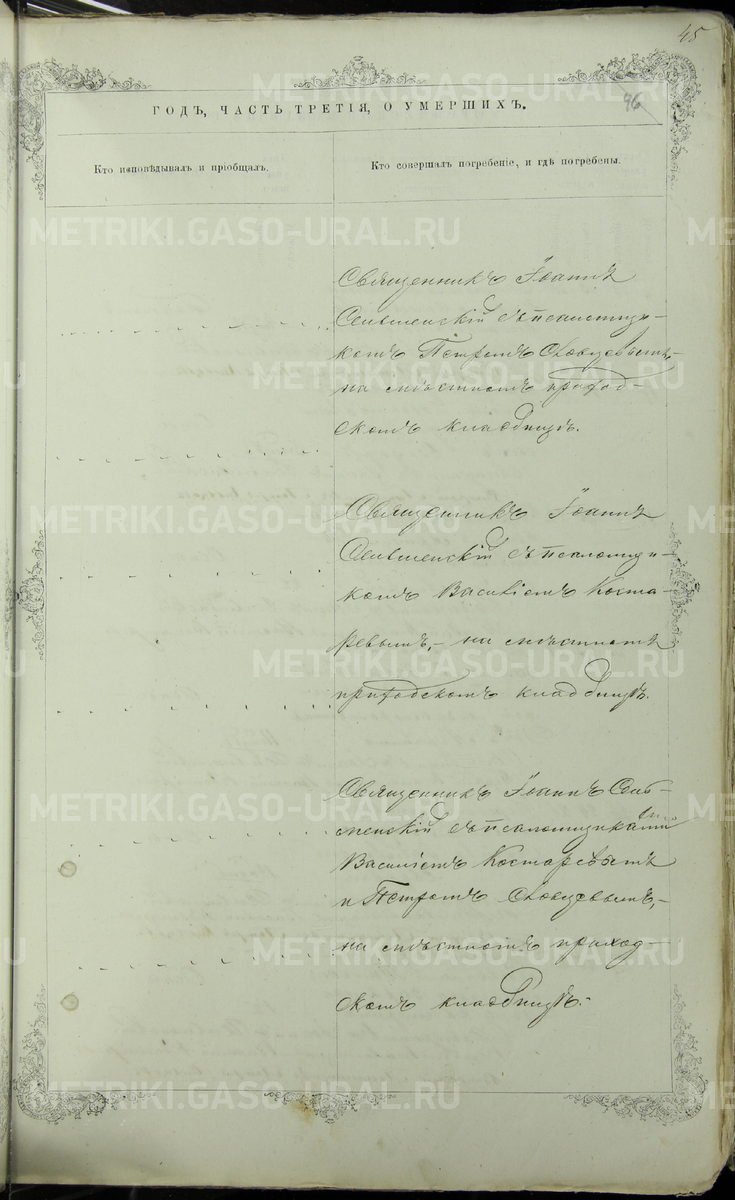 45
96
ГОДЪ, ЧАСТЬ ТРЕТІЯ, О УМЕРШИХЪ.
Кто исповѣдывалъ и пріобщалъ.
Кто совершалъ погребеніе, и гдѣ погребены.
Священникъ Іоаннъ
Сельменскій съ псаломщи-
комъ Петромъ
на мѣстномъ приход-
скомъ кладбищѣ.
Священникъ Іоаннъ
Сельменскій съ псаломщи-
комъ Василіемъ Коста-
ревымъ, - на мѣстномъ
приходскомъ кладбищѣ.
Священникъ Іоаннъ Сель-
менскій съ псаломщиками
Василіемъ Костаревымъ
и Петромъ
на мѣстномъ приход-
скомъ кладбищѣ.
METRIKI.GASO-URAL.RU